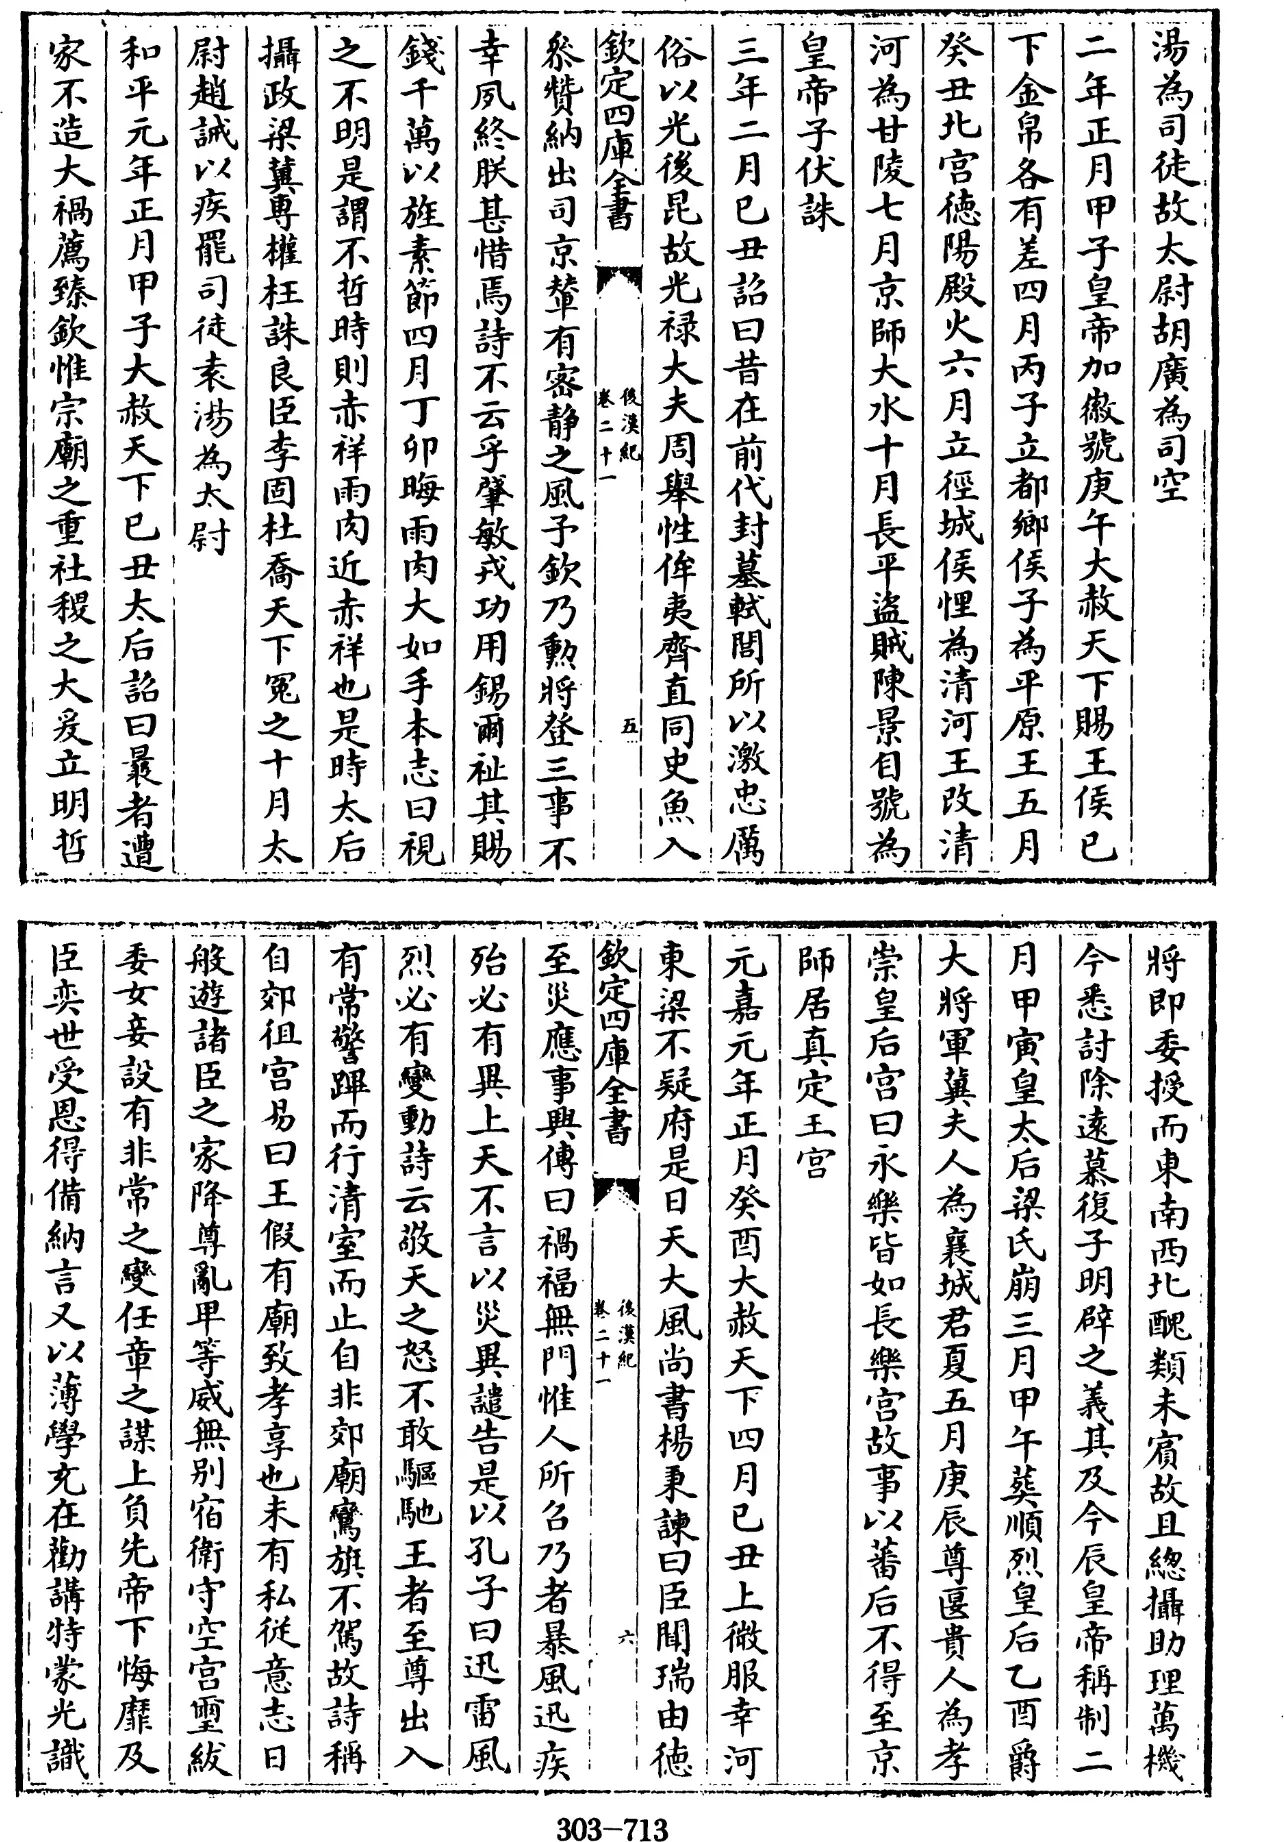 湯為司徒故太尉胡廣為司空
二年正月甲子皇帝加徽號庚午大赦天下賜王侯已
下金帛各有差四月丙子立都鄉侯子為平原王五月
癸丑北宮德陽殿火六月立徑城侯悝為清河王改清
河為甘陵七月京師大水十月長平盜賊陳景自號為
皇帝子伏誅
三年二月己丑詔曰昔在前代封墓軾閭所以激忠厲
俗以光後昆故光祿大夫周舉性侔夷齊直同史魚入
欽定四庫全書
後漢紀
卷二十一
五
叅贊納出司京輦有密静之風予欽乃勲將登三事不
幸夙終朕甚惜焉詩不云乎肇敏戎功用錫爾祉其賜
錢千萬以旌素節四月丁卯晦雨肉大如手本志曰視
之不明是謂不哲時則赤祥雨肉近赤祥也是時太后
攝政梁冀專權枉誅良臣李固杜喬天下冤之十月太
尉趙誡以疾罷司徒袁湯為太尉
和平元年正月甲子大赦天下已丑太后詔曰曩者遭
家不造大禍薦臻欽惟宗廟之重社稷之大爰立明哲
將即委授而東南西北醜類未賓故且總攝助理萬機
今悉討除遠慕復子明辟之義其及今辰皇帝稱制二
月甲寅皇太后梁氏崩三月甲午葬順烈皇后乙酉爵
大將軍冀夫人為襄城君夏五月庚辰尊匽貴人為孝
崇皇后宮曰永樂皆如長樂宮故事以蕃后不得至京
師居真定王宮
元嘉元年正月癸酉大赦天下四月已丑上微服幸河
東梁不疑府是日天大風尚書楊秉諫曰臣聞瑞由德
欽定四庫全書
後漢紀
卷二十一
六
至災應事興傳曰禍福無門惟人所召乃者暴風迅疾
殆必有異上天不言以災異譴告是以孔子曰迅雷風
烈必有變動詩云敬天之怒不敢驅馳王者至尊出入
有常警蹕而行清室而止自非郊廟鸞旗不駕故詩稱
自郊徂宮易曰王假有廟致孝享也未有私從意志日
般遊諸臣之家降尊亂卑等威無别宿衛守空宮璽紱
委女妾設有非常之變任章之謀上負先帝下悔靡及
臣奕世受恩得備納言又以薄學充在勸講特蒙光識
303-713